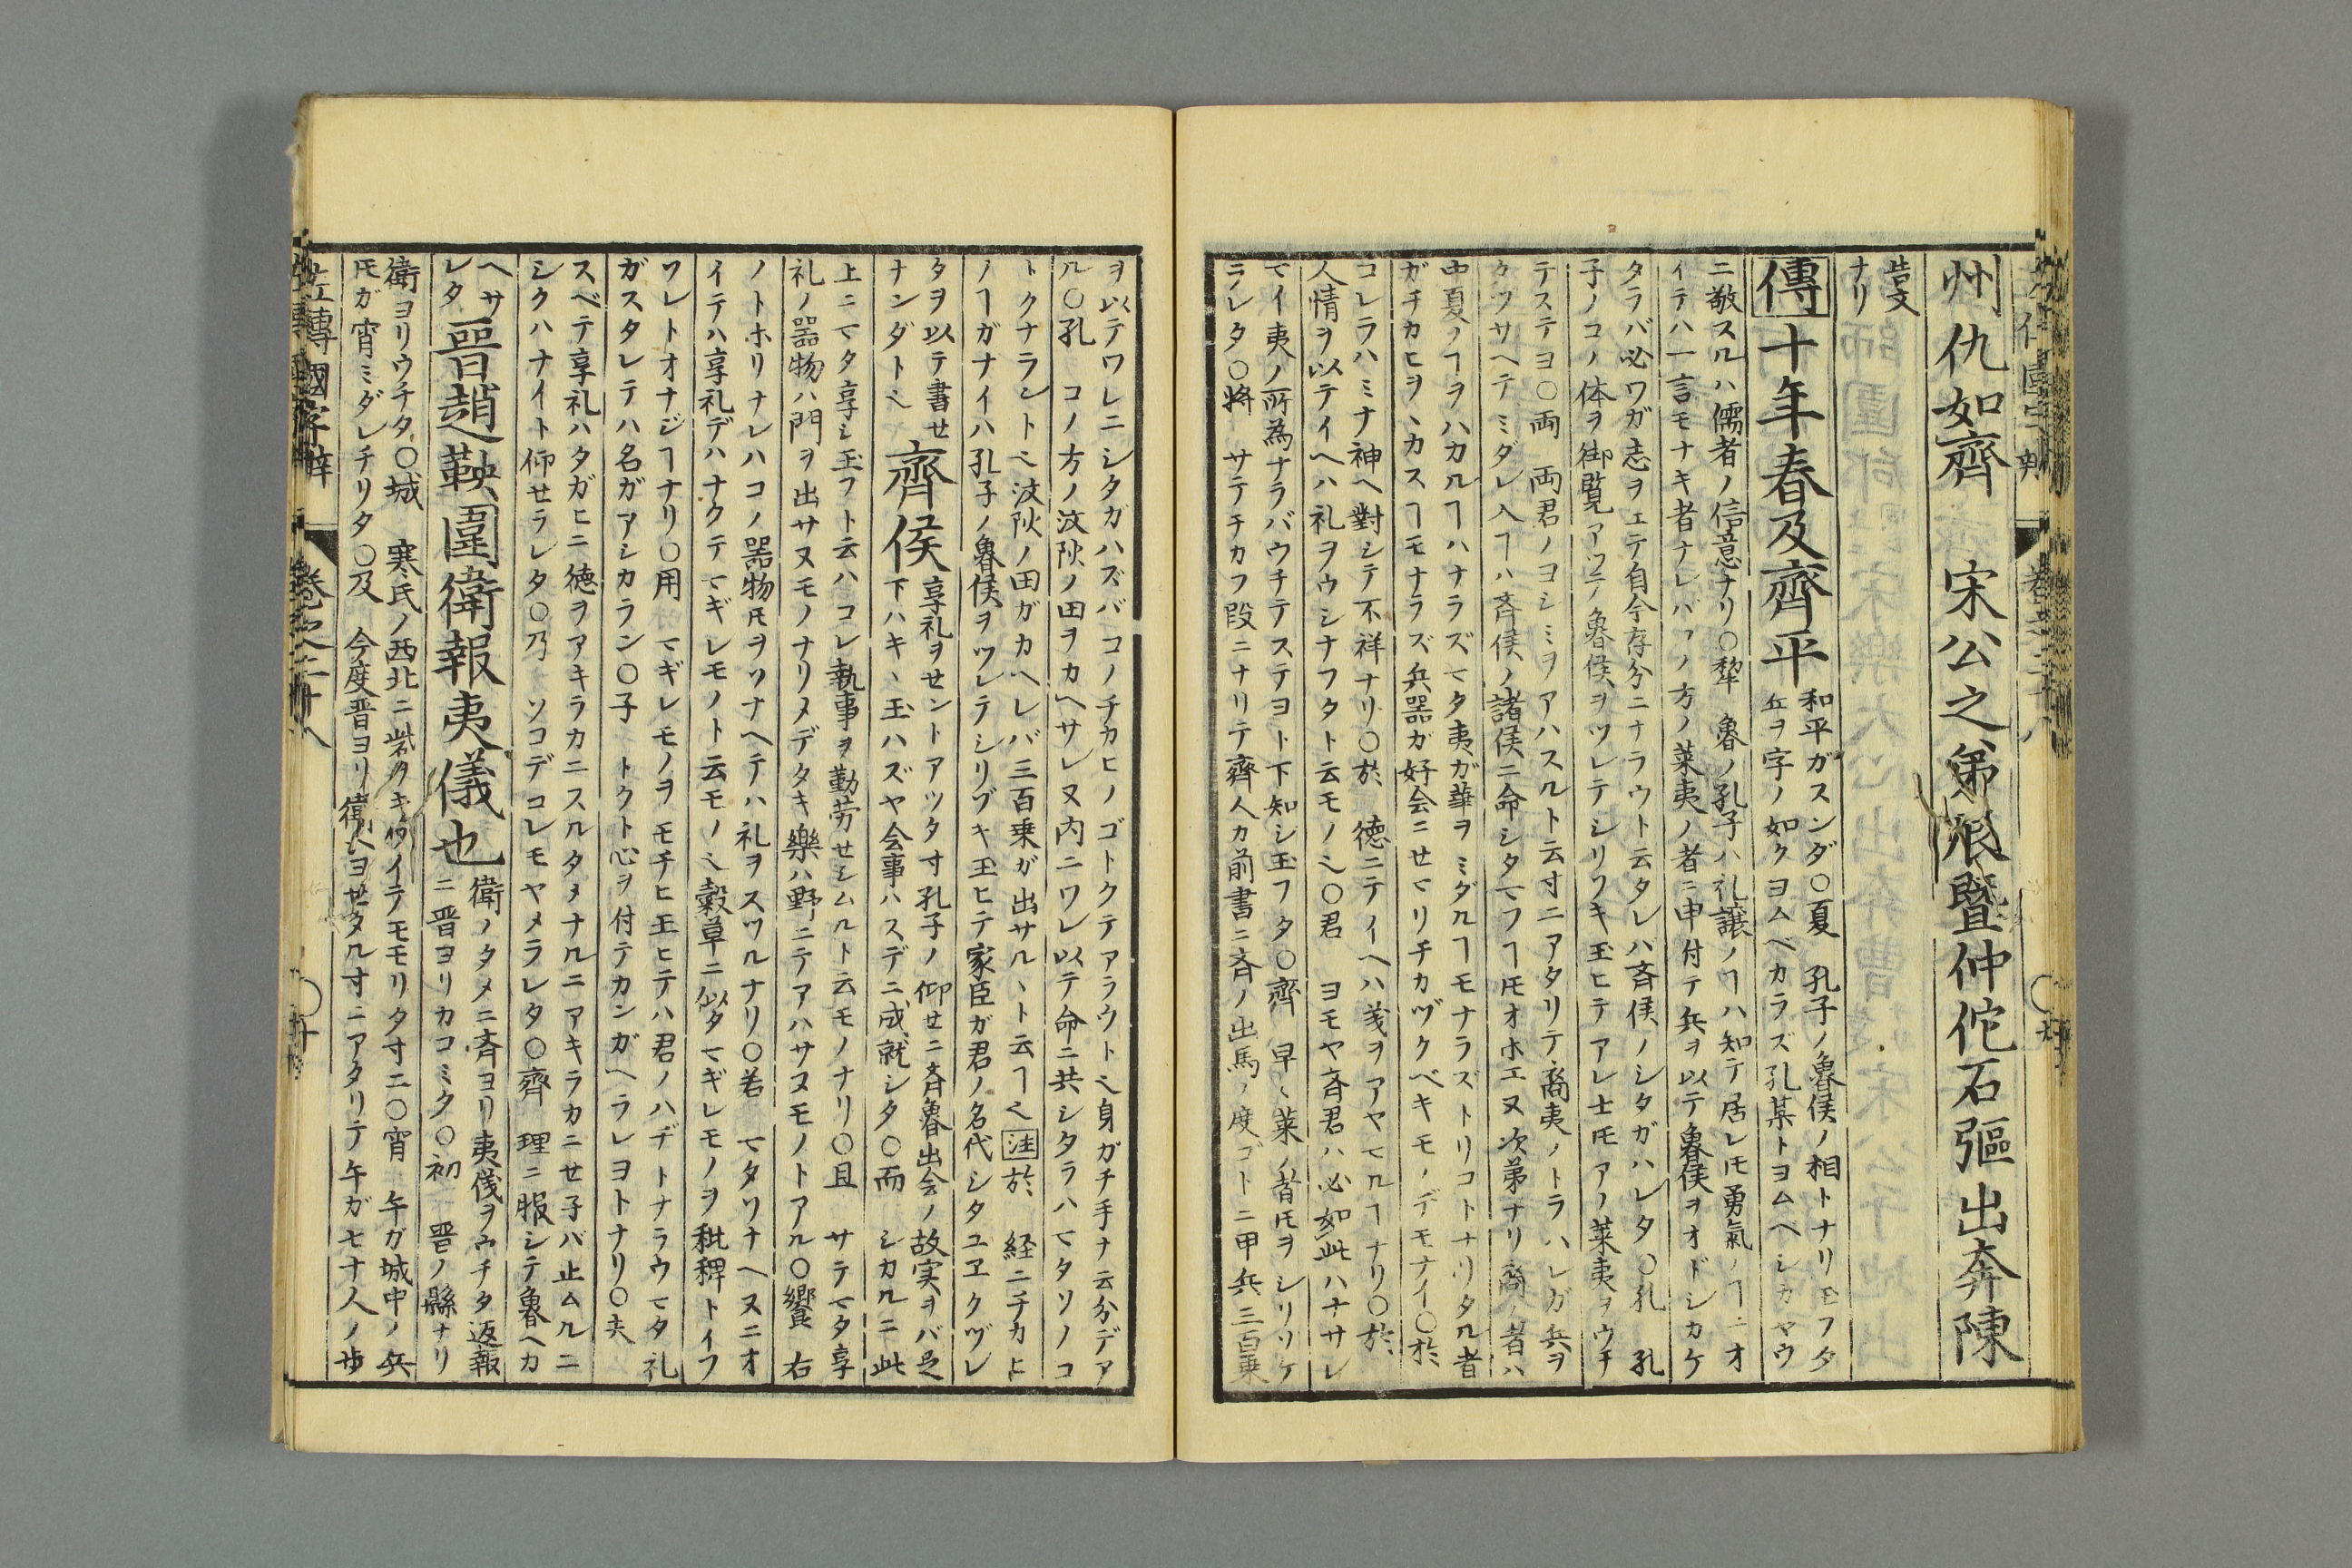 州仇如齊　宋公之弟辰暨仲佗石彄出奔陳
告文
ナリ
傳十年春及齊平
和平ガスンダ〇夏　孔子ノ魯侯ノ相トナリモフタ
丘ヲ字ノ如クヨムベカラズ孔某トヨムベシカヤウ
ニ敬スルハ儒者ノ信意ナリ〇犂　魯ノ孔子ハ礼譲ノヿハ知テ居レ𪜈勇氣ノヿニオ
イテハ一言モナキ者ナレバアノ方ノ萊夷ノ者ニ申付テ兵ヲ以テ魯侯ヲオドシカケ
タラバ必ワガ志ヲエテ自今存分ニナラウト云タレバ斉侯ノシタガハレタ〇孔　孔
子ノコノ体ヲ御覧アツテ魯侯ヲツレテシリソキ玉ヒテアレ士𪜈アノ萊夷ヲウチ
テステヨ〇両　両君ノヨシミヲアハスルト云寸ニアタリテ裔夷ノトラハレガ兵ヲ
クワサヘテミダレ入ヿハ斉侯ノ諸侯ニ命シタマフヿ𪜈オホエヌ次弟ナリ裔ノ者ハ
中夏ノヿヲハカルヿハナラズマタ夷ガ華ヲミダルヿモナラズトリコトナリタル者
ガチカヒヲヽカスヿモナラズ兵器ガ好会ニセマリチカヅクベキモノデモナイ〇於
コレラハミナ神ヘ對シテ不祥ナリ〇於　徳ニテイヘハ義ヲアヤマルヿナリ〇於
人情ヲ以テイヘハ礼ヲウシナフタト云モノ〇君　ヨモヤ斉君ハ必如此ハナサレ
マイ夷ノ所為ナラバウチテステヨト下知シ玉フタ〇齊　早〻萊ノ者𪜈ヲシリソケ
ラレタ〇將　サテチカフ段ニナリテ齊人カ前書ニ斉ノ出馬ノ度ゴトニ甲兵三百乗
ヲ以テワレニシタガハズバコノチカヒノゴトクテアラウト身ガチ手ナ云分デア
ル〇孔　コノ方ノ汶陽ノ田ヲカヘサレヌ内ニワレ以テ命ニ共シタラハマタソノコ
トクナラント汶陽ノ田ガカヘレバ三百乗ガ出サルヽト云ヿ 注於　経ニチカヒ
ノヿガナイハ孔子ノ魯侯ヲツレテシリゾキ玉ヒテ家臣ガ君ノ名代シタユヱクヅレ
タヲ以テ書せ
ナンダト
齊侯
享礼ヲセントアツタ寸孔子ノ仰せニ斉魯出会ノ故実ヲバ足
下ハキヽ玉ハズヤ会事ハスデニ成就シタ〇而　シカルニ此
上ニマタ享シ玉フト云ハコレ執事ヲ勤劳せシムルト云モノナリ〇且　サテマタ享
礼ノ器物ハ門ヲ出サヌモノナリメデタキ樂ハ野ニテアハサヌモノトアル〇饗　右
ノトホリナレハコノ器物𪜈ヲソナヘテハ礼ヲスツルナリ〇若　マタソナヘヌニオ
イテハ享礼デハナクテマギレモノト云モノ 穀草ニ似タマギレモノヲ秕稗トイフ
ワレトオナジヿナリ〇用　マギレモノヲモチヒ玉ヒテハ君ノハヂトナラウマタ礼
ガスタレテハ名ガアシカラン〇子　トクト心ヲ付テカンガヘラレヨトナリ〇夫
スベテ享礼ハタガヒニ徳ヲアキラカニスルタメナルニアキラカニせ子バ止ムルニ
シクハナイト仰せラレタ〇乃　ソコデコレモヤメラレタ〇齊　理ニ服シテ魯ヘカ
ヘサ
レタ
晉趙鞅圍衛報夷儀也
衛ノタメニ斉ヨリ夷儀ヲウチタ返報
ニ晋ヨリカコミタ〇初　晋ノ縣ナリ
衛ヨリウチタ〇城　寒氏ノ西北ニ
𪜈ガ宵ミダレチリタ〇及　今度晋ヨリ衛
イテモモリタ寸ニ〇宵　午ガ城中ノ兵
タル寸ニアタリテ午ガ七十人ノ歩
左傳國字辯　卷之二十八　〇十